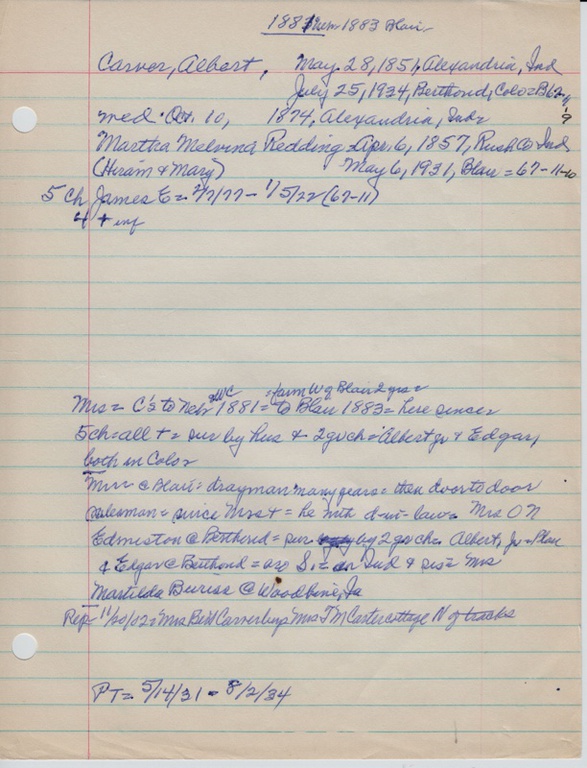 1881 Neb 1883 Blair
Carver, Albert, May 28, 1851, Alexandria, Ind
July 25, 1934, Berthoud, Colo = B 67-11-9
med. Oct. 10, 1874, Alexandria, Ind =
Martha Melvina Redding = Apr. 6, 1857, Rush Co Ind
(Hiram & Mary) May 6, 1931, Blair = 67-11-10
5 ch, James E = 2/7/77 - 1/5/22 (67-11)
4 + inf
Mrs = C's to Nebr & WC 1881 = farm W of Blair 2 yrs = to Blair 1883 = here since =
5 ch = all + = sur by hus & 2 gr ch = Albert jr & Edgar,
both in Colo =
Mr = @ Blair = drayman many years = then door to door
salesman = since Mrs + = he with d-in-law = Mrs O N
Edmiston @ Berthoud = sur by 2 gr ch = Albert, Jr = Blair
& Edgar @ Berthoud = also S. = in Ind & sis = Mrs
Martilda @ Woodbine, Ia
Rep = 11/20/02 = Mrs Bert Carver buys Mrs T M Carter cottage N of tracks
PT = 5/14/31 - 8/2/34